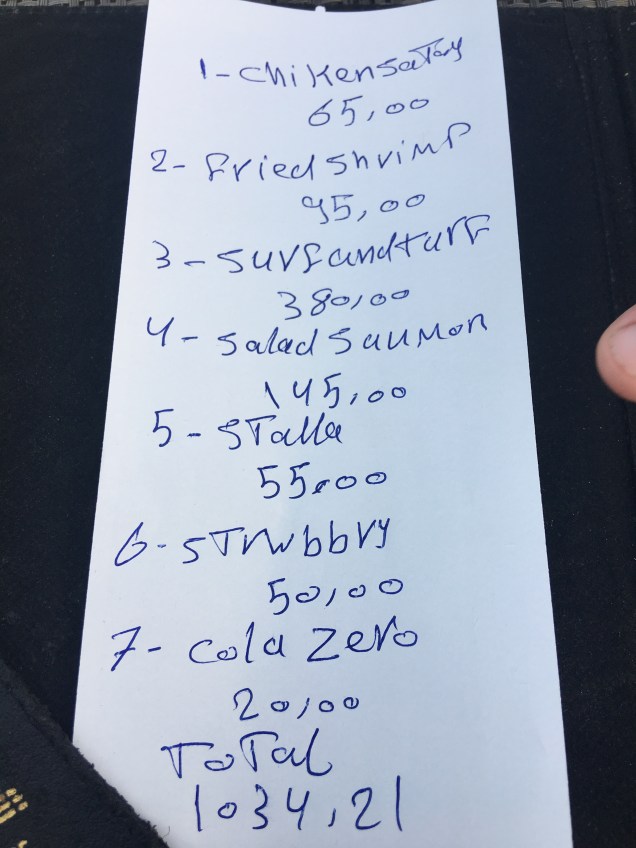 1- chikensatay
65,00
2- Friedshrimp
95,00
3- surfandturf
380,00
4- salad saumon
145,00
5- STalla
55,00
6- sTrwbbry
50,00
7- cola zero
20,00
ToTal
1034,21